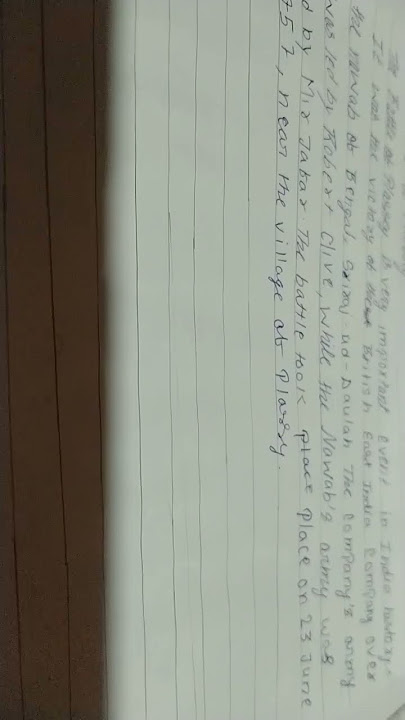 The Battle of Plassey is very important event in India history.
It was the victory of British East India Company over
the nawab of Bengal, Sziraj-ud-Daulah The Company's army
was led by Robert Clive, While the Nawab's army was
d by Mir Jabar. The battle took place place on 23 June
757, near the village of Plassey.